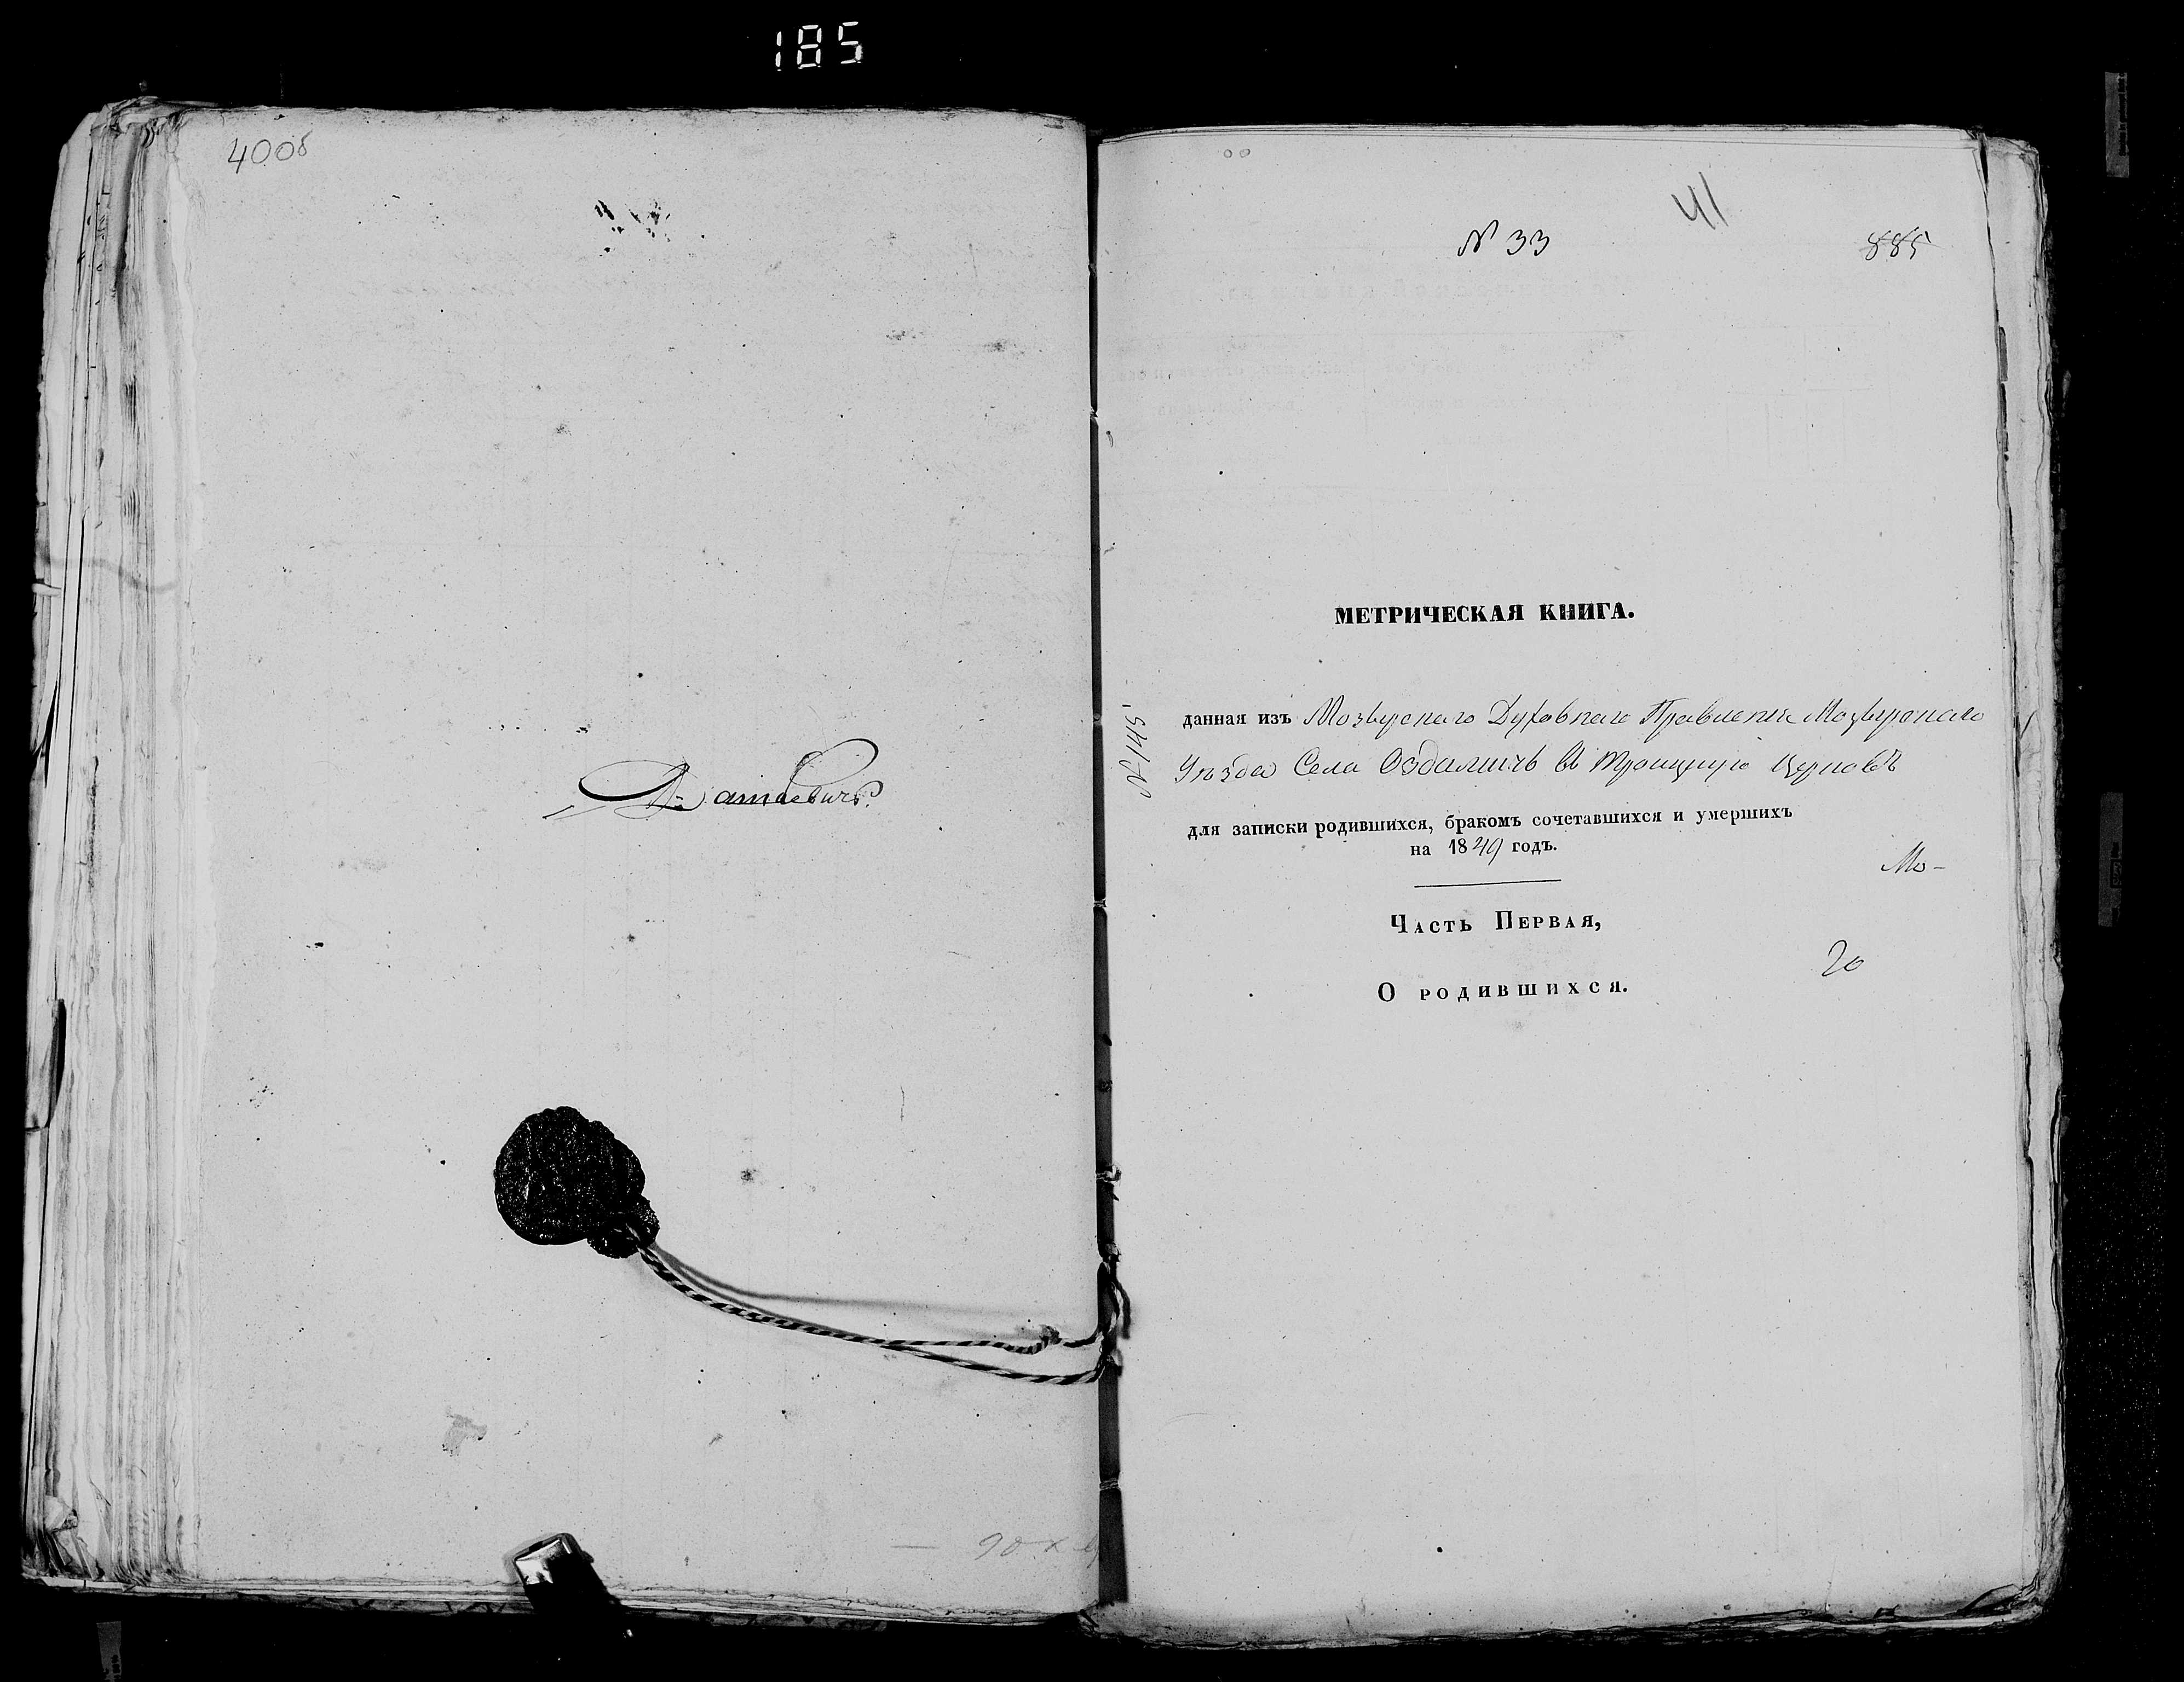 185
40об
41
N 33
885
МЕТРИЧЕСКАЯ КНИГА.
данная изъ Мозырскаго Духовнаго Правленія Мозырскаго
Уѣзда Села Оздамичь въ Троицкую Церковь
для записки родившихся, бракомъ сочетавшихся и умершихъ
на 1849 годъ.
Мо-
Часть Первая,
20
О родившихся.